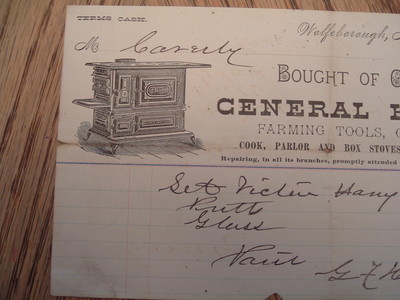 TERMS CASH.
Wolfeborough,
M Caverly
BOUGHT OF
GENERAL
FARMING TOOLS,
COOK, PARLOR AND BOX STOVES
Repairing, in all its branches, promptly attended
Set
Putt
Glass